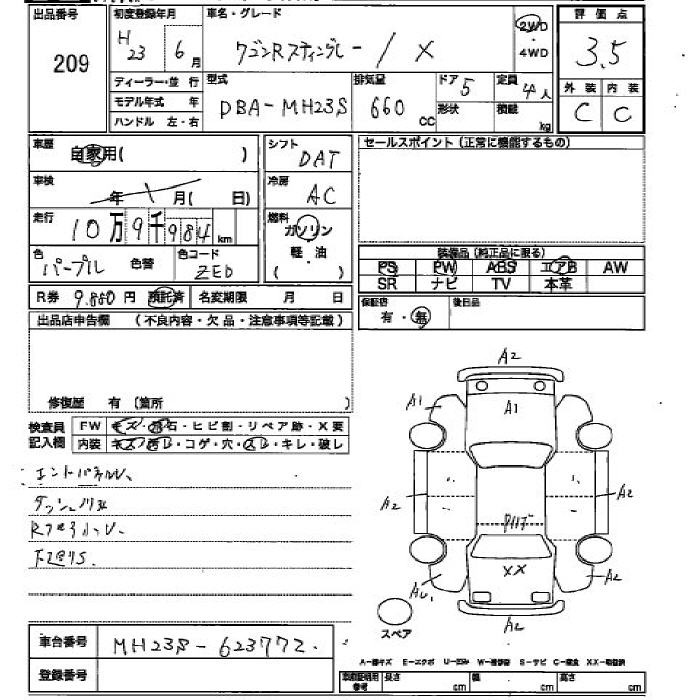 出品番号 初度登録年月 車名・グレード 評価点
209
H23 6月 ワゴンRスティングレー / X 2WD・4WD 3.5
ディーラー・並行 型式 排気量 ドア 定員 外装 内装
モデル年式 年 DBA-MH23S 660 CC 5 4人 C C
ハンドル 左・右 形状 積載 kg
車歴 自家用( ) シフト DAT セールスポイント(正常に機能するもの)
車検 年 月( 日) 冷房 AC
走行 10万9千984km 燃料 ガソリン
軽・油
( )
色 パープル 色替 色コード ZED 装備品(純正品に限る)
PS PW ABS エアB AW
SR ナビ TV 本革
R券 9.850円 預託済 名変期限 月 日 保証書 有・無 後日品
出品店申告欄 (不良内容・欠品・注意事項等記載)
修復歴 有 (箇所 )
検査員記入欄 FW キズ・飛石・ヒビ割・リペア跡・X要
内装 キズ・汚レ・コゲ・穴・スレ・キレ・破レ
A2
A1 A1
A2 A2
XX
A2
A2
スペア
車台番号 MH23S-623772
登録番号
A-線キズ E-エクボ U-凹み W-補修跡 S-サビ C-腐食 XX-交換済
車庫証明用参考 長さ cm 幅 cm 高さ cm